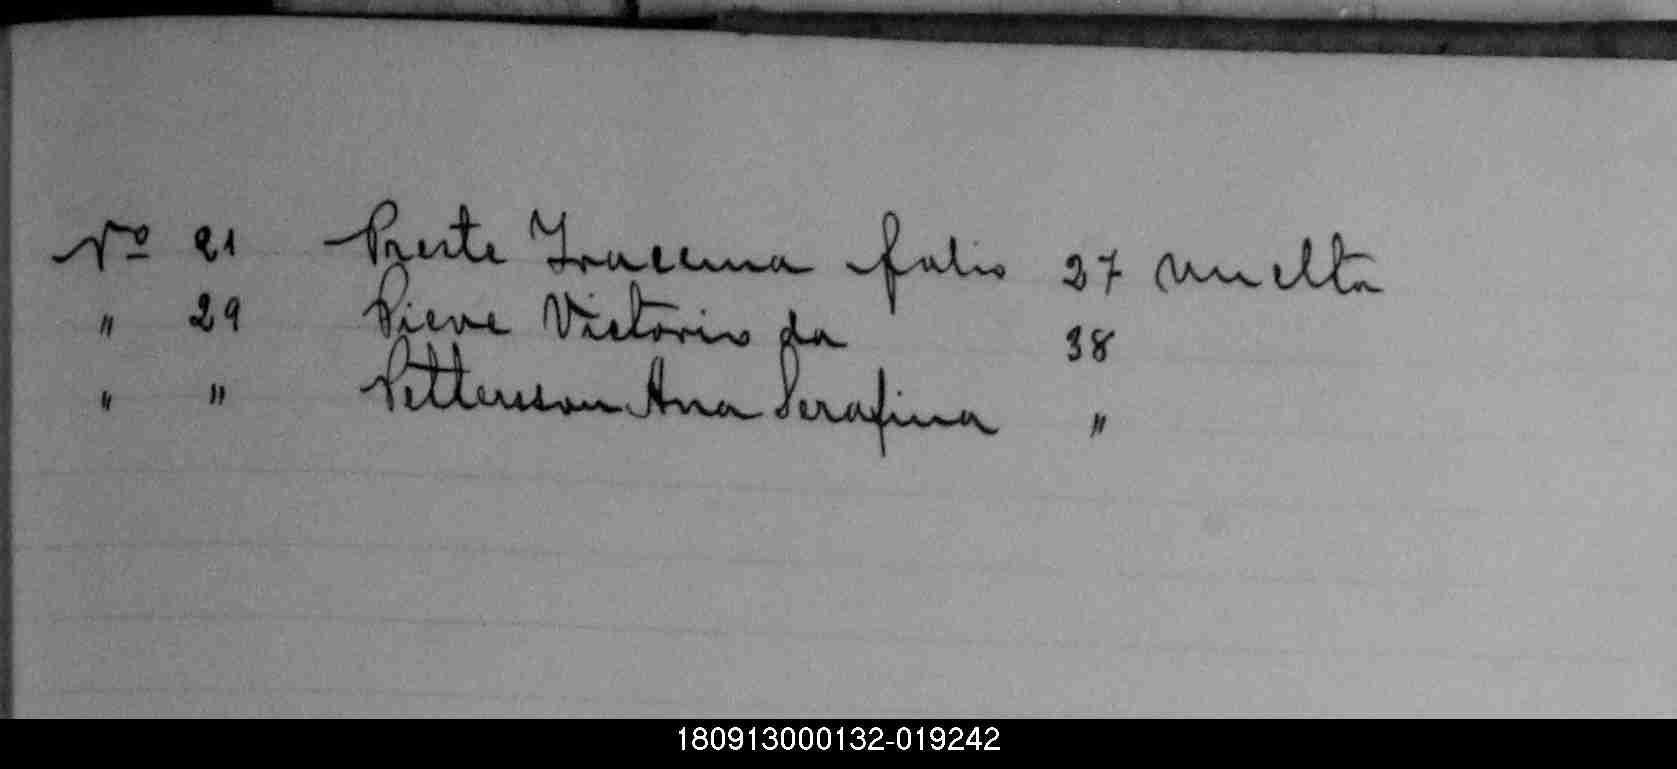 Nº 21 Preste Iracema folio 27 vuelta
" 29 Pieve Victorio da 38
" " Pettersson Ana Serafina "
180913000132-019242